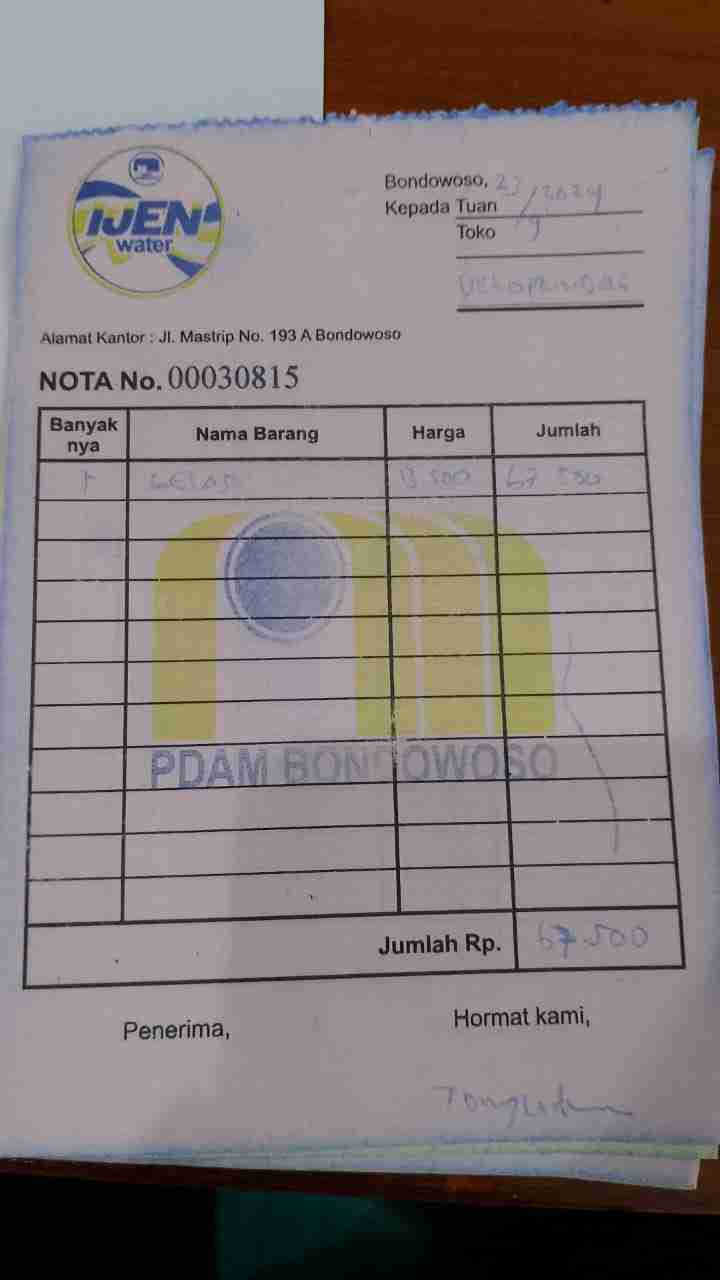 IJEN
water
Bondowoso, 23/9 2024
Kepada Tuan
Toko
Alamat Kantor : Jl. Mastrip No. 193 A Bondowoso
NOTA No. 00030815
Banyak nya Nama Barang Harga Jumlah
GELAS 13 500 67 500
PDAM BONDOWOSO
Jumlah Rp. 67.500
Penerima, Hormat kami,